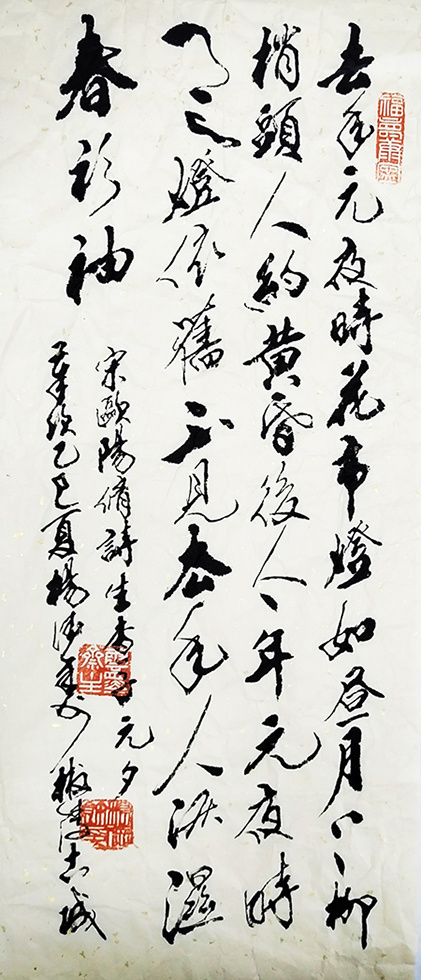 去年元夜時花市燈如晝月上柳
梢頭人約黃昏後今年元夜時
月与燈依舊不見去年人淚濕
春衫袖
宋歐陽脩詩生查子元夕
歲次乙巳夏楊 椒陵古城